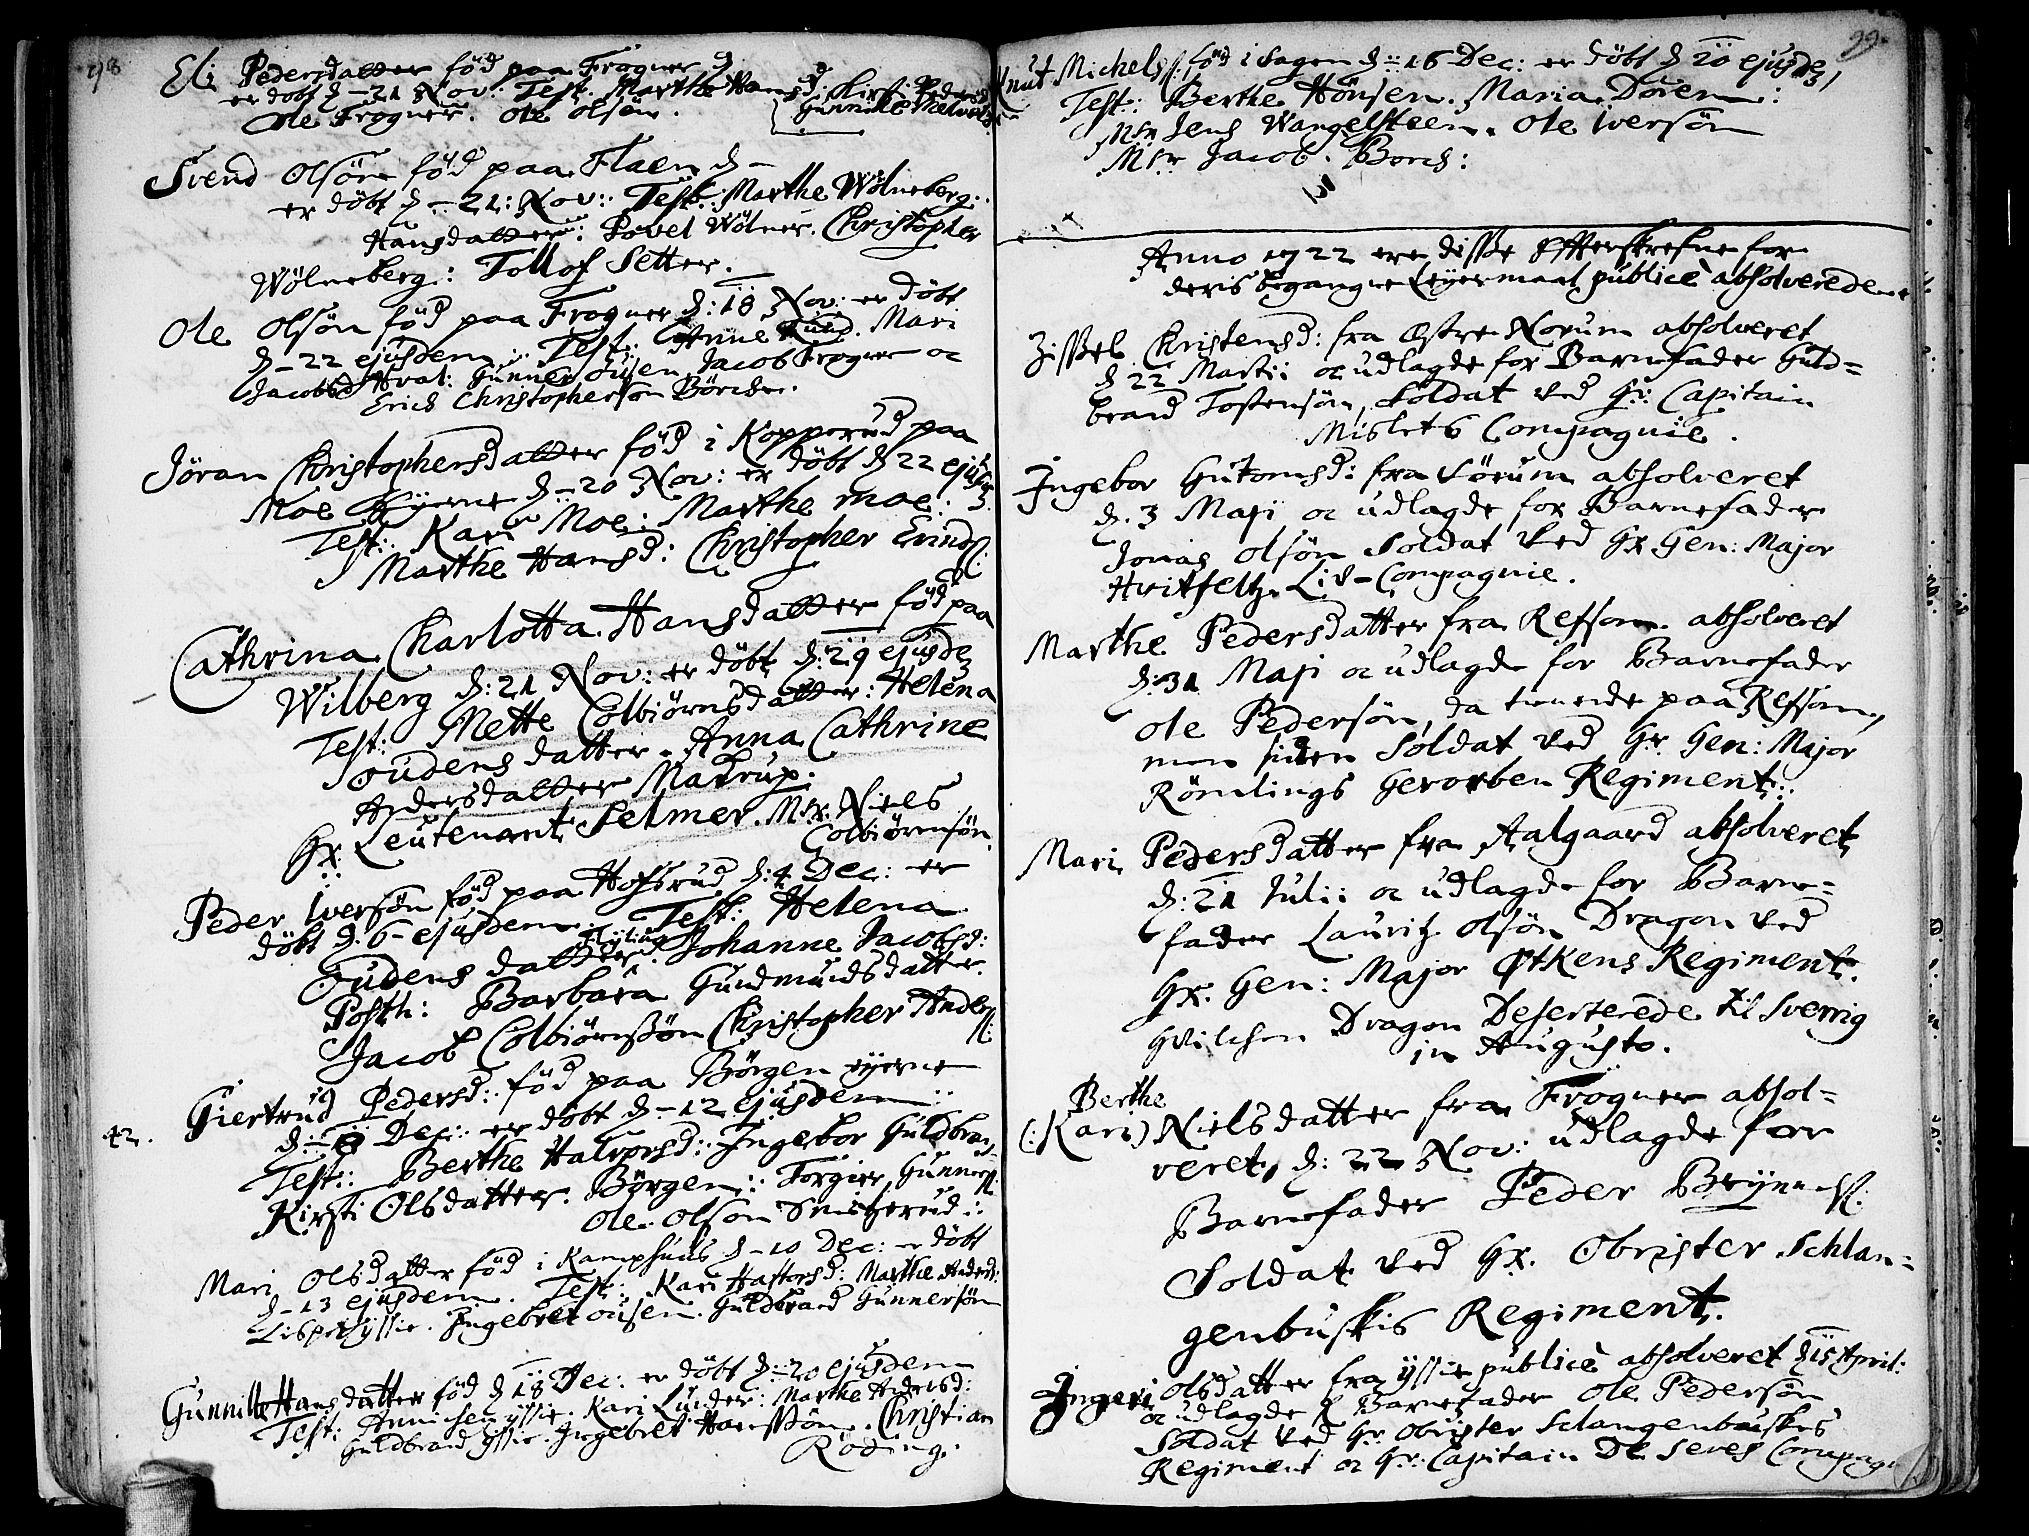 98
Eli Pedersdatter föd paa Frogner d
er döbt d - 21 Nov: Test. Marthe Hansd: Kirsti Peders
Ole Frogner. Ole Olsön. Gunnild
Svend Olsön föd paa Flaen d -
er döbt d - 21: Nov: Test: Marthe Wölneberg:
Hansdatter: Povel Wölner. Christopher
Wölneberg: Tollof Setter.
Ole Olsön föd paa Frogner d: 18 Nov: er döbt
d - 22 ejusdem. Test: Anne Mari
Jacobsd Gunner Jacob Frogner oc
Erich Christophersön Börcke.
Jöran Christophersdatter föd i Kopperud paa
Moe Eyerne d - 20 Nov: er döbt d 22 ejusd
Test: Kari Moe: Marthe Moe:
Marthe Hansd: Christopher Erinds:
Cathrina Charlotta Hansdatter föd paa
Wilberg d: 21 Nov: er döbt d: 29 ejusde
Test: Mette Colbiörnsdatter: Helena
Oudensdatter. Anna Cathrine
Andersdatter Matrup.
Hr: Leutenant Selmer. Msr. Niels
Colbiörnsön.
Peder Iversön föd paa Hofsrud d: 4 Dec: er
döbt d. 6 - ejusdem. Test: Helena
Oudens datter Johanne Jacobsd:
Posth: Barbara Gudmundsdatter.
Jacob Colbiörnssön Christopher Anders:
42. Giertrud Pedersd: föd paa Börgen eyerne
d - 8 Dec: er döbt d - 12 ejusdem:
Test: Berthe Halvorsd: Ingebor Guldbrands
Kirsti Olsdatter. Börgen: Torgier Gunners:
Ole Olsön
Mari Olsdatter föd i Kamphuus d - 10 Dec: er döbt
d - 13 ejusdem. Test: Kari Haftorsd: Marthe Anders:
Lisbet yssie. Ingebret ousen. Guldbrand Gunnersön
Gunnild Hansdatter föd d 18 Dec: er döbt d: 20 ejusdem
Test: Annichen yssie. Kari Lunder: Marthe Andersd:
Guldbrand yssie. Ingebret Hanssön. Christian
Röding.
99.
Knut Michels: föd i Sagen d: 16 Dec: er döbt d 20 ejusde
Test: Berthe Hönsen. Maria Doren:
Msr Jens Wangelsteen. Ole Iversön
Msr Jacob. Borch:
Anno 1722 ere disse Efterskrefne for
deris begangne Leyermaal publicè absolverede
Zissel Christensd: fra Østre Norum absolveret
d 22 Martii oc udlagde for Barnefader Guld=
brand Tostensön, Soldat ved Hr: Capitain
Mislets Compagnie.
Ingebor Gutomsd: fra Sörum absolveret
d. 3 Maji oc udlagde for Barnefader
Jonas Olsön Soldat ved Hr Gen: Major
Hvitfeltz Liv-Compagnie.
Marthe Pedersdatter fra Refsom absolveret
d: 31 Maji oc udlagde for Barnefader
Ole Pedersön, da tienende paa Refsom,
men siden Soldat ved Hr. Gen: Major
Römlings Gevorben Regiment:
Mari Pedersdatter fra Aalgaard absolveret
d: 21 Julii oc udlagde for Barne=
fader Lauritz Olsön Dragon ved
Hr. Gen: Major Øtkens Regiment.
Hvilchen Dragon Deserterede til Sverrig
in Augusto.
Berthe
(:Kari) Nielsdatter fra Frogner absol=
veret, d: 22 Nov: udlagde for
Barnefader Peder Bryni:
Soldat ved Hr. Obrister Schlan=
genbuskis Regiment.
Ingeri Olsdatter fra yssie publicè absolveret d 15 April:
oc udlagde f Barnefader Ole Pedersön
Soldat ved Hr. Obrister Slangenbuskes
Regiment oc Hr: Capitain De Seves Compagn